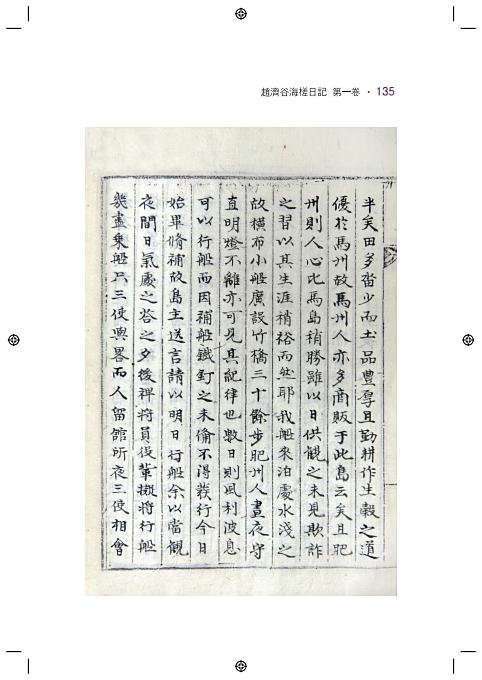 趙濟谷海槎日記 第一卷 · 135
半矣田多畓少而土品豊厚且勤耕作生穀之道
優於馬州故馬州人亦多商販于此島云矣且肥
州則人心比馬島稍勝雖以日供觀之未見欺詐
之習以其生涯稍裕而然耶我船來泊處水淺之
故橫布小船廣設竹橋三十餘步肥州人晝夜守
直明燈不離亦可見其紀律也數日則風利波息
可以行船而因補船鐵釘之未備不得發行今日
始畢脩補故島主送言請以明日行船余以當觀
夜間日氣處之答之夕後裨將員役輩擬將行船
幾盡乘船只三使與畧而人留館所夜三使相會